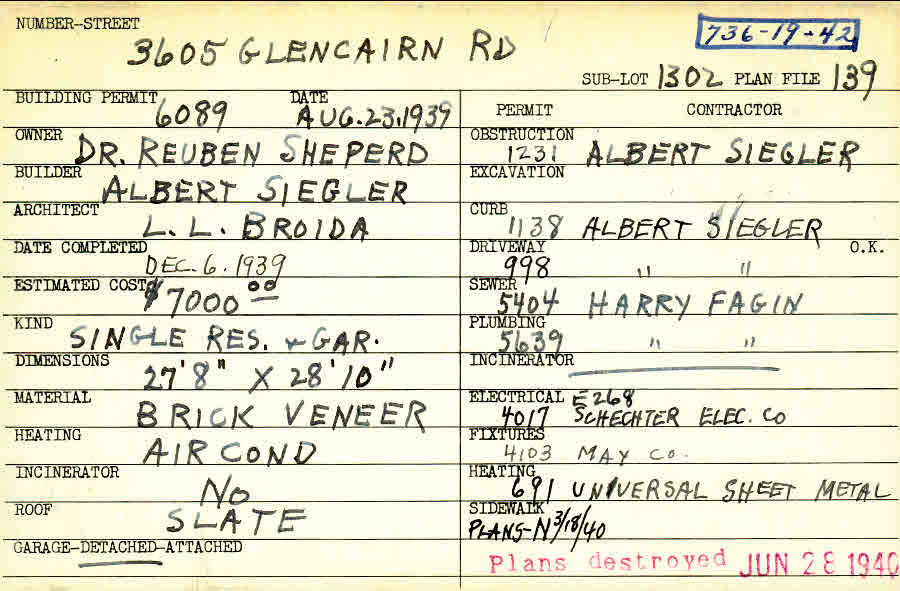 NUMBER-STREET
3605 GLENCAIRN RD
736-19-42
SUB-LOT 1302 PLAN FILE 139
BUILDING PERMIT 6089 DATE AUG. 23, 1939
OWNER DR. REUBEN SHEPERD
BUILDER ALBERT SIEGLER
ARCHITECT L. L. BROIDA
DATE COMPLETED DEC. 6. 1939
ESTIMATED COST $7000 00
KIND SINGLE RES. & GAR.
DIMENSIONS 27'8" X 28'10"
MATERIAL BRICK VENEER
HEATING AIR COND
INCINERATOR NO
ROOF SLATE
GARAGE-DETACHED-ATTACHED
PERMIT CONTRACTOR
OBSTRUCTION 1231 ALBERT SIEGLER
EXCAVATION
CURB 1138 ALBERT SIEGLER
DRIVEWAY 998 " " O.K.
SEWER 5404 HARRY FAGIN
PLUMBING 5639 " "
INCINERATOR
ELECTRICAL E268
4017 SCHECHTER ELEC. CO
FIXTURES 4103 MAY CO.
HEATING 691 UNIVERSAL SHEET METAL
SIDEWALK
PLANS-N 3/18/40
Plans destroyed JUN 28 1940